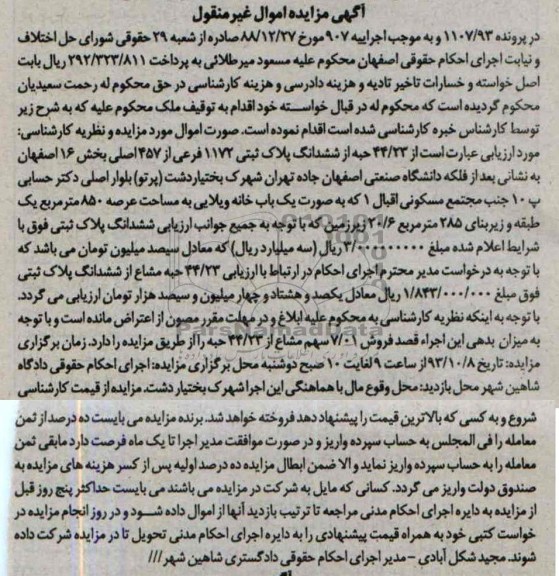 آگهی مزایده اموال غیر منقول
در پرونده ۱۱۰۷/۹۳ و به موجب اجراییه ۹۰۷ مورخ ۸۸/۱۲/۲۷ صادره از شعبه ۲۹ حقوقی شورای حل اختلاف
و نیابت اجرای احکام حقوقی اصفهان محکوم علیه مسعود میرطلائی به پرداخت ۲۹۲/۳۲۳/۸۱۱ ریال بابت
اصل خواسته و خسارات تاخیر تادیه و هزینه دادرسی و هزینه کارشناسی در حق محکوم له رحمت سعیدیان
محکوم گردیده است که محکوم له در قبال خواسته خود اقدام به توقیف ملک محکوم علیه که به شرح زیر
توسط کارشناس خبره کارشناسی شده است اقدام نموده است. صورت اموال مورد مزایده و نظریه کارشناسی:
مورد ارزیابی عبارت است از ۴۴/۲۳ حبه از ششدانگ پلاک ثبتی ۱۱۷۲ فرعی از ۴۵۷ اصلی بخش ۱۶ اصفهان
به نشانی بعد از فلکه دانشگاه صنعتی اصفهان جاده تهران شهرک بختیاردشت (پرتو) بلوار اصلی دکتر حسابی
پ ۱۰ جنب مجتمع مسکونی اقبال ۱ که به صورت یک باب خانه ویلایی به مساحت عرصه ۸۵۰ مترمربع یک
طبقه و زیربنای ۲۸۵ مترمربع ۲۰/۶ زیرزمین که با توجه به جمیع جوانب ارزیابی ششدانگ پلاک ثبتی فوق با
شرایط اعلام شده مبلغ ۳/۰۰۰/۰۰۰/۰۰۰ ریال (سه میلیارد ریال) که معادل سیصد میلیون تومان می باشد که
با توجه به درخواست مدیر محترم اجرای احکام در ارتباط با ارزیابی ۴۴/۲۳ حبه مشاع از ششدانگ پلاک ثبتی
فوق مبلغ ۱/۸۴۳/۰۰۰/۰۰۰ ریال معادل یکصد و هشتاد و چهار میلیون و سیصد هزار تومان ارزیابی می گردد.
با توجه به اینکه نظریه کارشناسی به محکوم علیه ابلاغ و در مهلت مقرر مصون از اعتراض مانده است و با توجه
به میزان بدهی این اجراء قصد فروش ۷/۰۱ سهم مشاع از ۴۴/۲۳ حبه را از طریق مزایده را دارد. زمان برگزاری
مزایده: تاریخ ۹۳/۱۰/۸ از ساعت ۹ لغایت ۱۰ صبح دوشنبه محل برگزاری مزایده: اجرای احکام حقوقی دادگاه
شاهین شهر محل بازدید: محل وقوع مال با هماهنگی این اجرا شهرک بختیار دشت. مزایده از قیمت کارشناسی
شروع و به کسی که بالاترین قیمت را پیشنهاد دهد فروخته خواهد شد. برنده مزایده می بایست ده درصد از ثمن
معامله را فی المجلس به حساب سپرده واریز و در صورت موافقت مدیر اجرا تا یک ماه فرصت دارد مابقی ثمن
معامله را به حساب سپرده واریز نماید و الا ضمن ابطال مزایده ده درصد اولیه پس از کسر هزینه های مزایده به
صندوق دولت واریز می گردد. کسانی که مایل به شرکت در مزایده می باشند می بایست حداکثر پنج روز قبل
از مزایده به دایره اجرای احکام مدنی مراجعه تا ترتیب بازدید آنها از اموال داده شود و در روز انجام مزایده در
خواست کتبی خود به همراه قیمت پیشنهادی را به دایره اجرای احکام مدنی تحویل تا در مزایده شرکت داده
شوند. مجید شکل آبادی - مدیر اجرای احکام حقوقی دادگستری شاهین شهر///
ParsNamadData